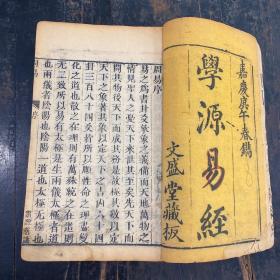 嘉慶庚午春鐫
學源易經
文盛堂藏板
周易序
易之為書卦爻彖象之義備而天地萬物之
情見聖人之憂天下來世其至矣先天下而
開其物後天下而成其務是故極其數以定
天下之象著其象以定天下之吉凶六十四
卦三百八十四爻皆所以順性命之理盡變
化之道也散之在理則有萬殊統之在道則
无二致所以易有太極是生兩儀太極者道
也兩儀者陰陽也陰陽一道也太極无極也
周易 序